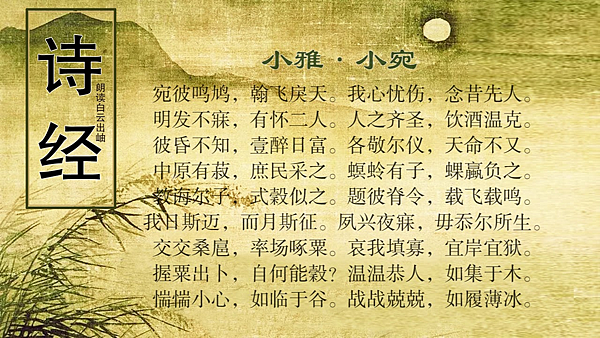 诗经
朗读白云出岫
小雅·小宛
宛彼鸣鸠，翰飞戾天。我心忧伤，念昔先人。
明发不寐，有怀二人。人之齐圣，饮酒温克。
彼昏不知，壹醉日富。各敬尔仪，天命不又。
中原有菽，庶民采之。螟蛉有子，蜾蠃负之。
教诲尔子，式穀似之。题彼脊令，载飞载鸣。
我日斯迈，而月斯征。夙兴夜寐，毋忝尔所生。
交交桑扈，率场啄粟。哀我填寡，宜岸宜狱。
握粟出卜，自何能穀？温温恭人，如集于木。
惴惴小心，如临于谷。战战兢兢，如履薄冰。